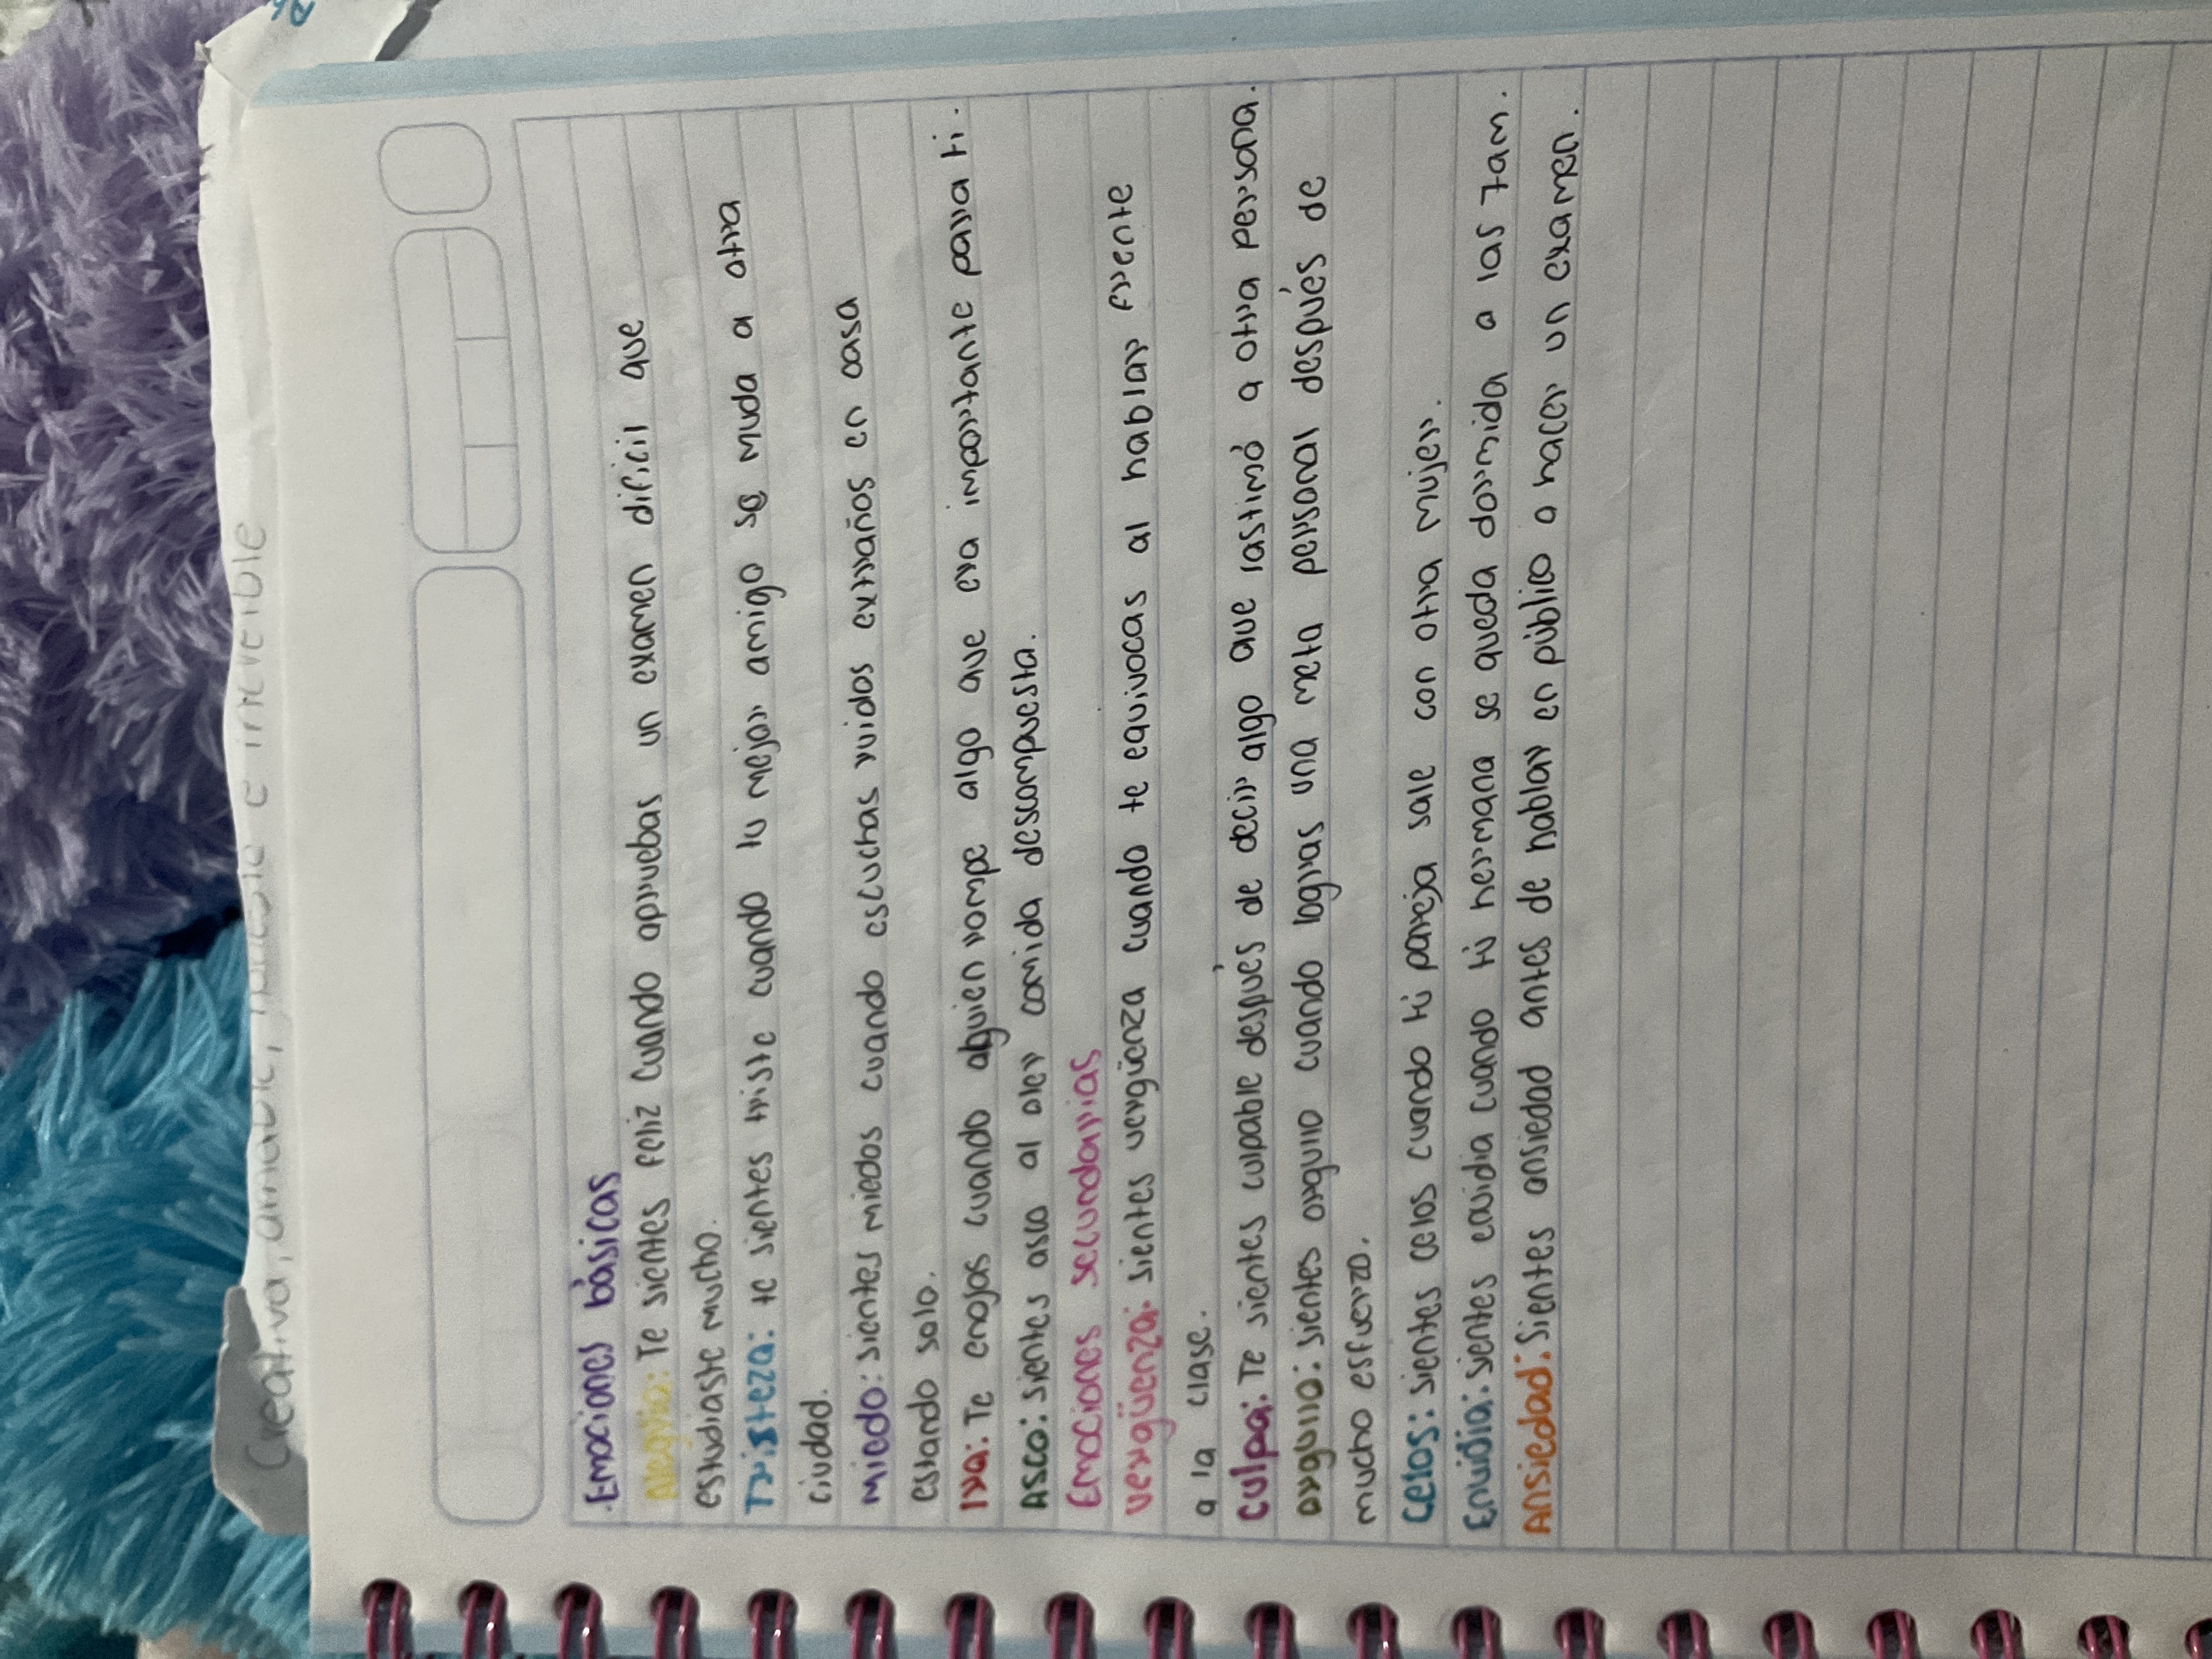 Creativa, amable, e increible
Emociones básicas
Alegria: Te sientes feliz cuando apruebas un examen dificil que
estudiaste mucho.
Tristeza: te sientes triste cuando tu mejor amigo se muda a otra
ciudad.
Miedo: sientes miedos cuando escuchas ruidos extraños en casa
estando solo.
Ira: Te enojas cuando alguien rompe algo que era importante para ti.
Asco: sientes asco al oler comida descompuesta.
Emociones secundarias
vergüenza: sientes vergüenza cuando te equivocas al hablar frente
a la clase.
Culpa: Te sientes culpable después de decir algo que lastimó a otra persona.
orgullo: sientes orgullo cuando logras una meta personal después de
mucho esfuerzo.
Celos: sientes celos cuando tú pareja sale con otra mujer.
Envidia: sientes envidia cuando tú hermana se queda dormida a las 7am.
Ansiedad: Sientes ansiedad antes de hablar en público o hacer un examen.